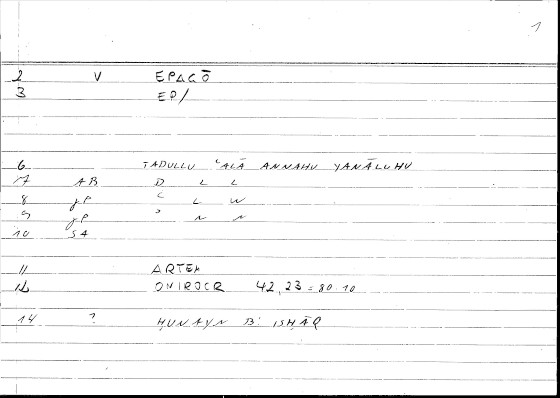 1
2 V EPAGŌ
3 EP/
6 TADULLU ʿALĀ ANNAHU YANĀLUHU
7 AB D L L
8 gP ʿ L W
9 gP ʾ N N
10 SA
11 ARTEM
12 ONIROCR 42,23 = 80.10
14 ? ḤUNAYN B: ISḤĀQ